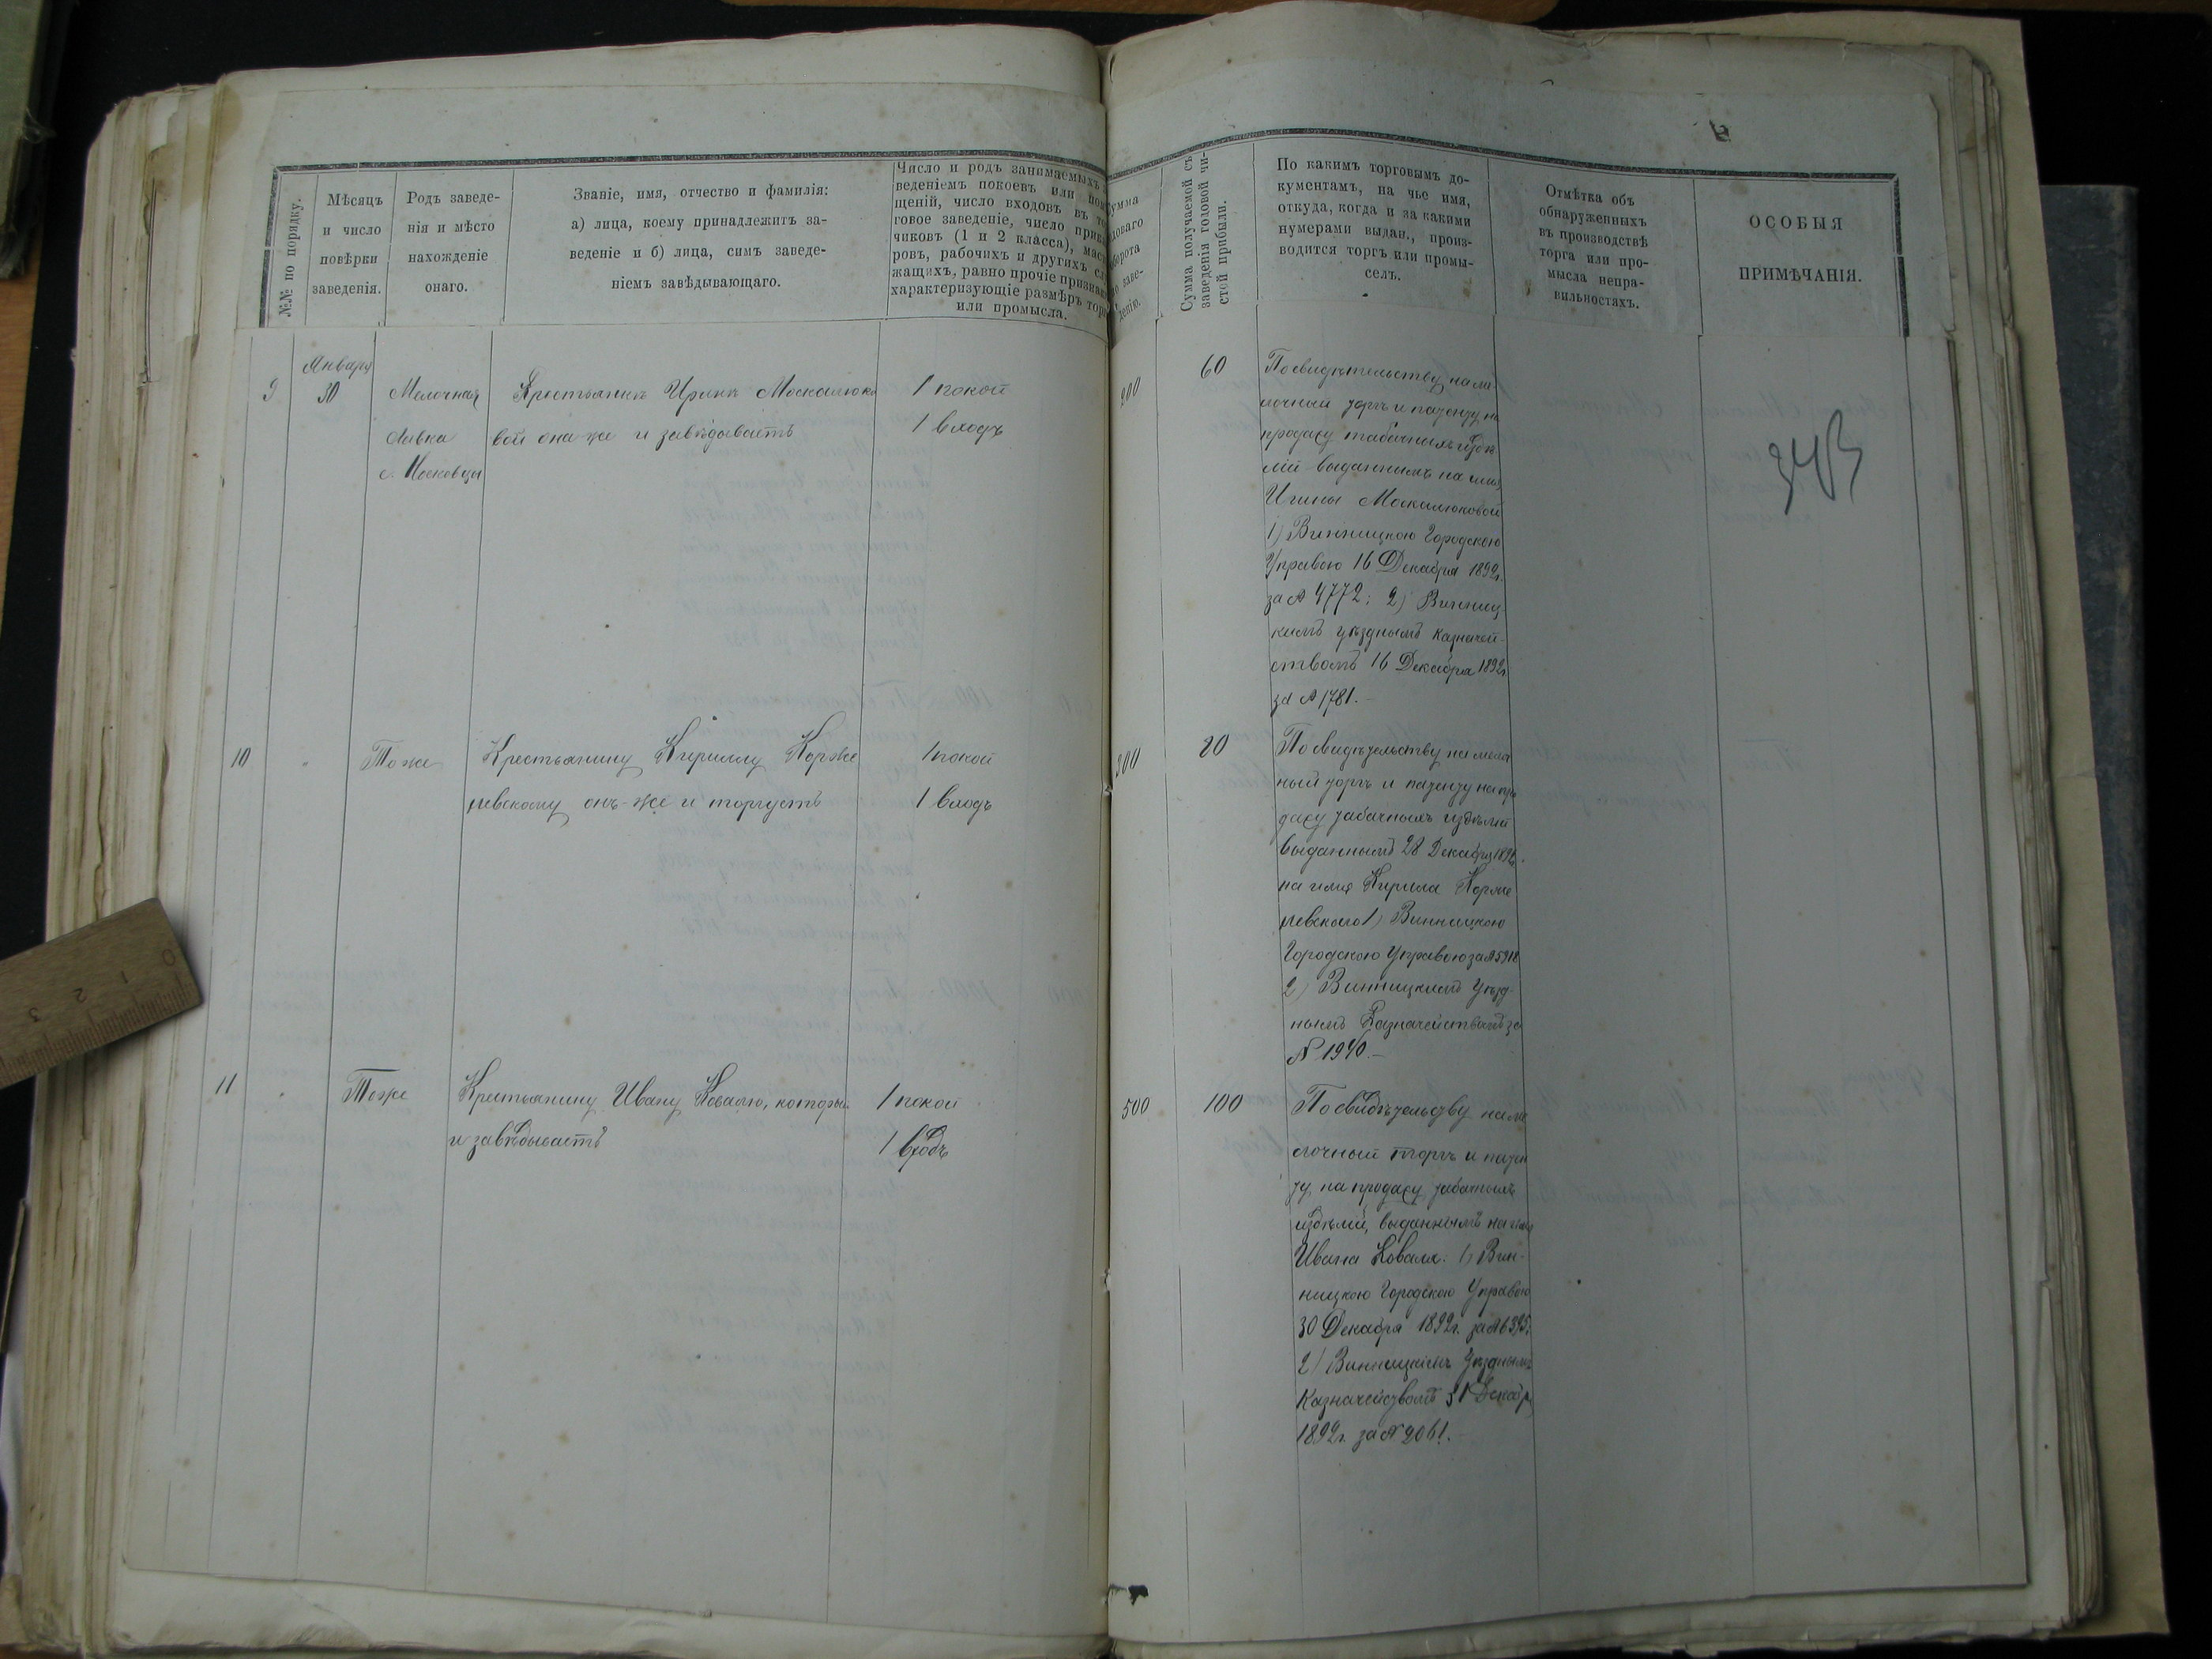 №№ по порядку.
Мѣсяцъ
и число
повѣрки
заведенія.
Родъ заведе-
нія и мѣсто
нахожденіе
онаго.
Званіе, имя, отчество и фамилія:
а) лица, коему принадлежитъ за-
веденіе и б) лица, симъ заведе-
ніемъ завѣдывающаго.
Число и родъ занимаемыхъ
веденіемъ покоевъ или пом
щеній, число входовъ въ то
говое заведеніе, число прика
чиковъ (1 и 2 класса), маст
ровъ, рабочихъ и другихъ сл
жащихъ, равно прочіе признак
характеризующіе размѣръ торг
или промысла.
умма
доваго
борота
о заве-
денію.
Сумма получаемой съ
заведенія годовой чи-
стой прибыли.
По какимъ торговымъ до-
кументамъ, на чье имя,
откуда, когда и за какими
нумерами выдан., произ-
водится торгъ или промы-
селъ.
Отмѣтка объ
обнаруженныхъ
въ производствѣ
торга или про-
мысла непра-
вильностяхъ.
ОСОБЫЯ
ПРИМѢЧАНІЯ.
9
Января
30
Мелочная
лавка
с. Московцы
Крестьянкѣ Иринѣ Москалюко
вой она же и завѣдываетъ
1 покой
1 входъ
200
60
По свидѣтельству на ме
лочный торгъ и патенту на
продажу табачныхъ издѣ
лій выданнымъ на имя
Ирины Москалюковой
1) Винницкою Городскою
Управою 16 Декабря 1892г.
за № 4772; 2) Винниц
кимъ уѣзднымъ казначей-
ствомъ 16 Декабря 1892г
за № 1781.-
10
"
Тоже
Крестьянину Кириллу Корже
левскому онъ-же и торгуетъ
1 покой
1 входъ
200
20
По свидѣтельству на мелоч
ный торгъ и патенту на про
дажу табачныхъ издѣлій
выданнымъ 28 Декабря 1892
на имя Кирила Корже
левского 1) Винницкою
Городскою Управою за №5918
2) Винницкимъ Уѣзд-
нымъ Казначействомъ за
№ 1940.-
11
"
Тоже
Крестьянину Ивану Ковалю, который
и завѣдываетъ
1 покой
1 входъ
500
100
По свидѣтельству на ме
лочный торгъ и патен
ту на продажу табачныхъ
издѣлій, выданнымъ на имя
Ивана Коваля: 1) Вин-
ницкою Городскою Управою
30 Декабря 1892г. за №6395;
2) Винницкимъ Уѣзднымъ
Казначействомъ 31 Декабр
1892г. за № 2061.
343
0 1 2 3